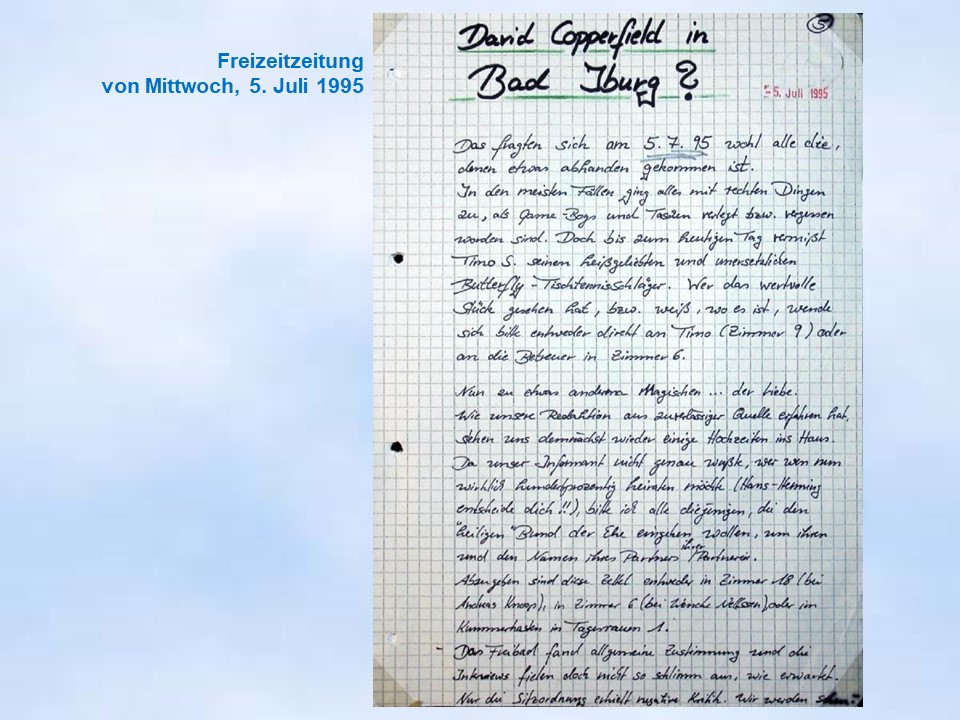 Freizeitzeitung
von Mittwoch, 5. Juli 1995
5
David Copperfield in
Bad Iburg?
-5. Juli 1995
Das fragten sich am 5.7.95 wohl alle die,
denen etwas abhanden gekommen ist.
In den meisten Fällen ging alles mit rechten Dingen
zu, als Game-Boys und Taschen verlegt bzw. vergessen
worden sind. Doch bis zum heutigen Tag vermißt
Timo S. seinen heißgeliebten und unersetzlichen
Butterfly-Tischtennisschläger. Wer das wertvolle
Stück gesehen hat, bzw. weiß, wo es ist, wende
sich bitte entweder direkt an Timo (Zimmer 9) oder
an die Betreuer in Zimmer 6.
Nun zu etwas anderem Magischen... der Liebe.
Wie unsere Redaktion aus zuverlässiger Quelle erfahren hat,
stehen uns demnächst wieder einige Hochzeiten ins Haus.
Da unser Informant nicht genau wußte, wer wen nun
wirklich hundertprozentig heiraten möchte (Hans-Henning
entscheide dich!!), bitte ich alle diejenigen, die den
"heiligen" Bund der Ehe eingehen wollen, um ihren
und den Namen ihres Partners/ihrer Partnerin.
Abzugeben sind diese Zettel entweder in Zimmer 18 (bei
Andreas Knoop), in Zimmer 6 (bei Wencke) oder im
Kummerkasten in Tagesraum 1.
- Das Freibad fand allgemeine Zustimmung und die
Interviews fielen doch nicht so schlimm aus, wie erwartet.
Nur die Sitzordnung erhielt negative Kritik. Wir werden sehen!